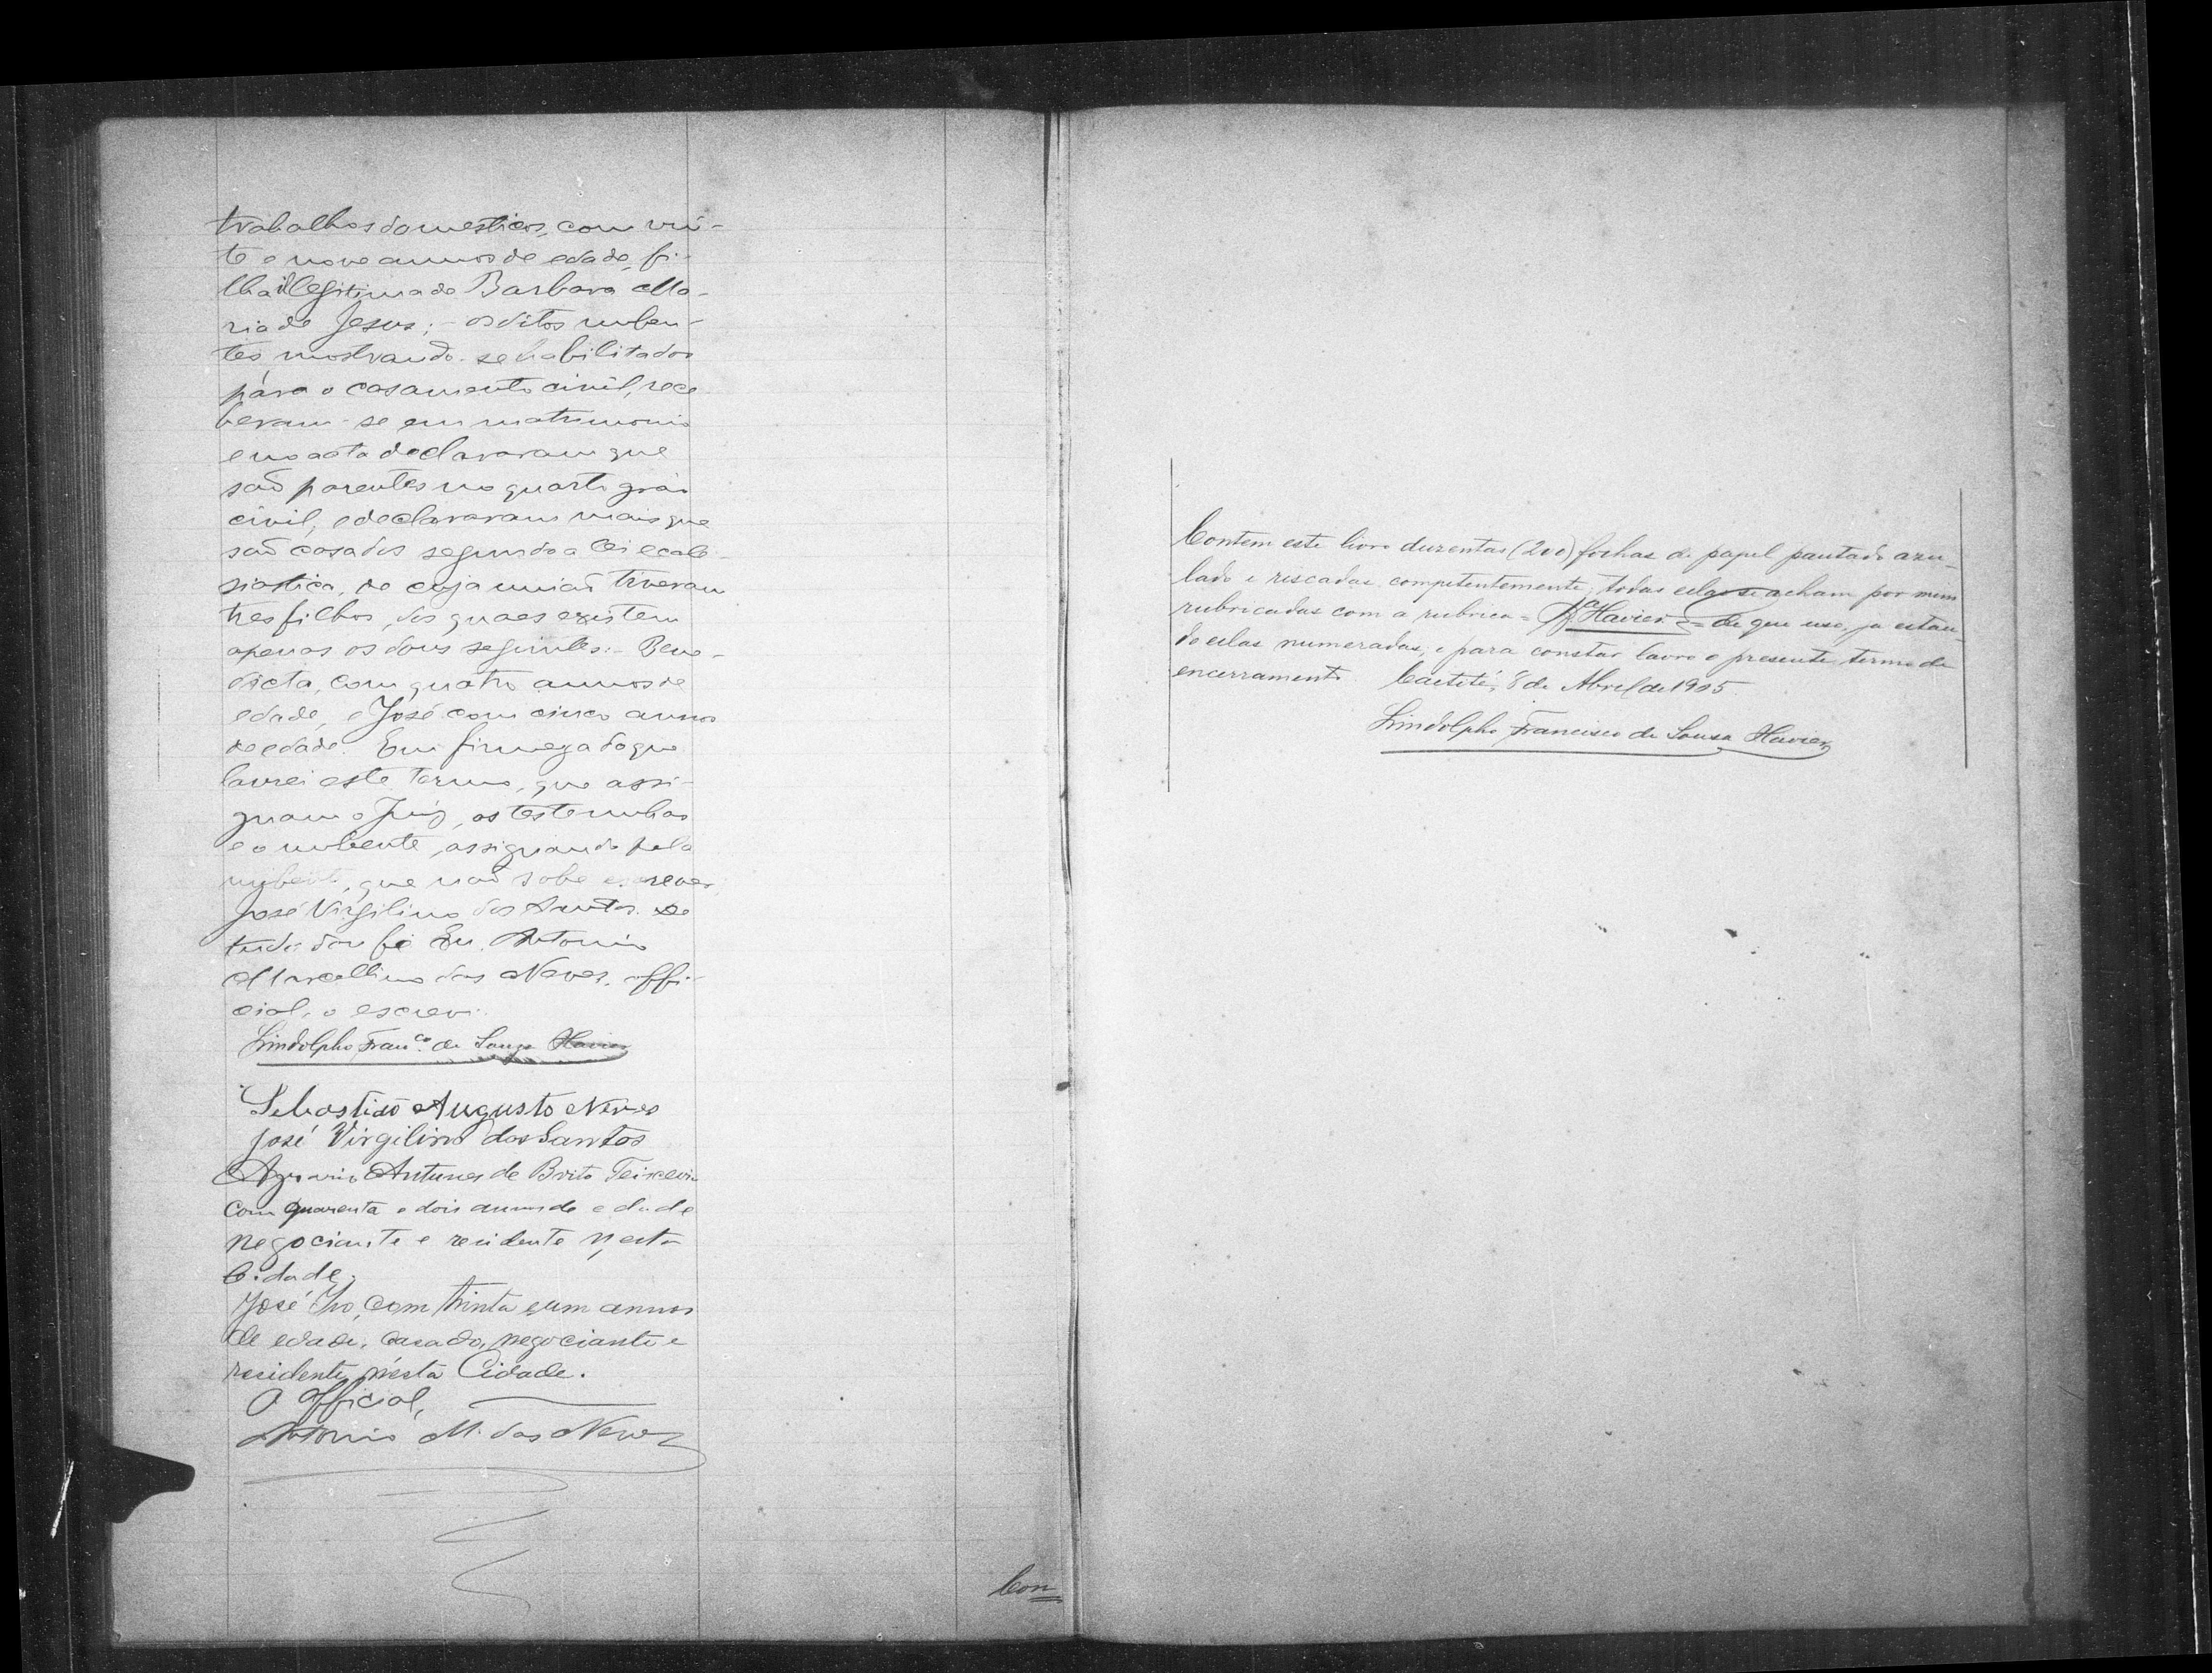 trabalhos domesticos, com vin-
te e nove annos de edade, fi-
lha illegitima de Barbara Ma-
ria de Jesus; - os ditos nuben-
tes, mostrando-se habilitados
para o casamento civil, rece
beram-se em matrimonio
e no acto declararam que
são parentes no quarto gráo
civil, e declararam mais que
são casados segundo a lei ecale-
siastica, de cuja união tiveram
tres filhos, dos quaes existem
apenas os dous seguintes: - Bene-
dicta, com quatro annos de
edade, e José com cinco annos
de edade. Em firmeza do que
lavrei este termo, que assi-
gnam o Juiz, as testemunhas
e o nubente, assignando pela
nubente, que não sabe escrever
José Virgilino dos Santos. De
tudo dou fé Eu, Antonio
Marcellino das Neves, offi-
cial, o escrevi.
Lindolpho Fran.co de Souza Havier
Sebastião Augusto Neves
José Virgilino dos Santos
Antunes de Brito Teixeira
com quarenta e dois annos de edade
negociante e residente nesta
Cidade.
José Ivo, com trinta e um annos
de edade, casado, negociante e
residente n'esta Cidade.
O Official,
Antonio M. das Neves
Con
Contem este livro duzentas (200) folhas de papel pautado azu-
lado e riscadas competentemente, todas ellas se acham por mim
rubricadas com a rubrica = Havier = de que uso, ja estan-
do ellas numeradas, e para constar lavro o presente termo de
encerramento Caetité, 8 de Abril de 1905
Lindolpho Francisco de Sousa Havier